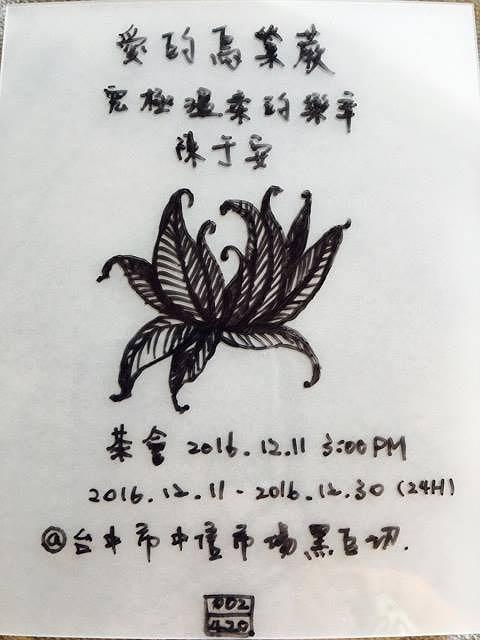 愛的鳥葉蕨
究極溫柔的樂章
陳于安
茶會 2016.12.11 3:00PM
2016.12.11-2016.12.30 (24H)
@台中市中信市場黑白切.
002
420